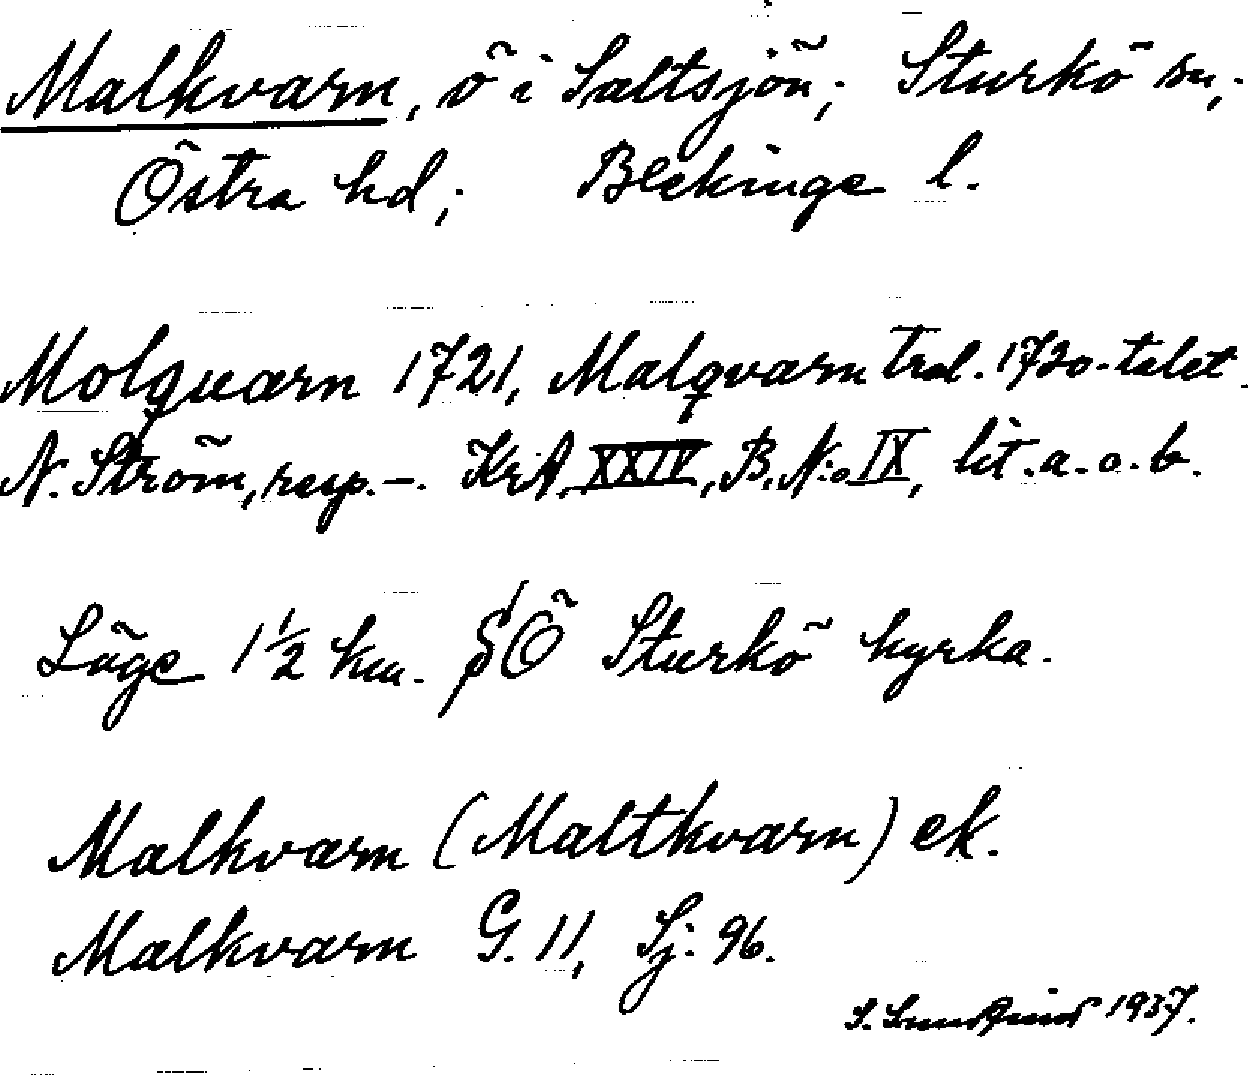 Malkvarn, ö i Saltsjön; Sturkö sn,
Östra hd; Blekinge l.
Molquarn 1721, Malqvarn trol. 1720-talet.
N. Ström, resp. –. KrA XXIV, B. N:o IX, lit. a. o. b.
Läge 1½ km. SÖ Sturkö kyrka.
Malkvarn (Maltkvarn) ek.
Malkvarn G. 11, Sj. 96.
S. 1937.